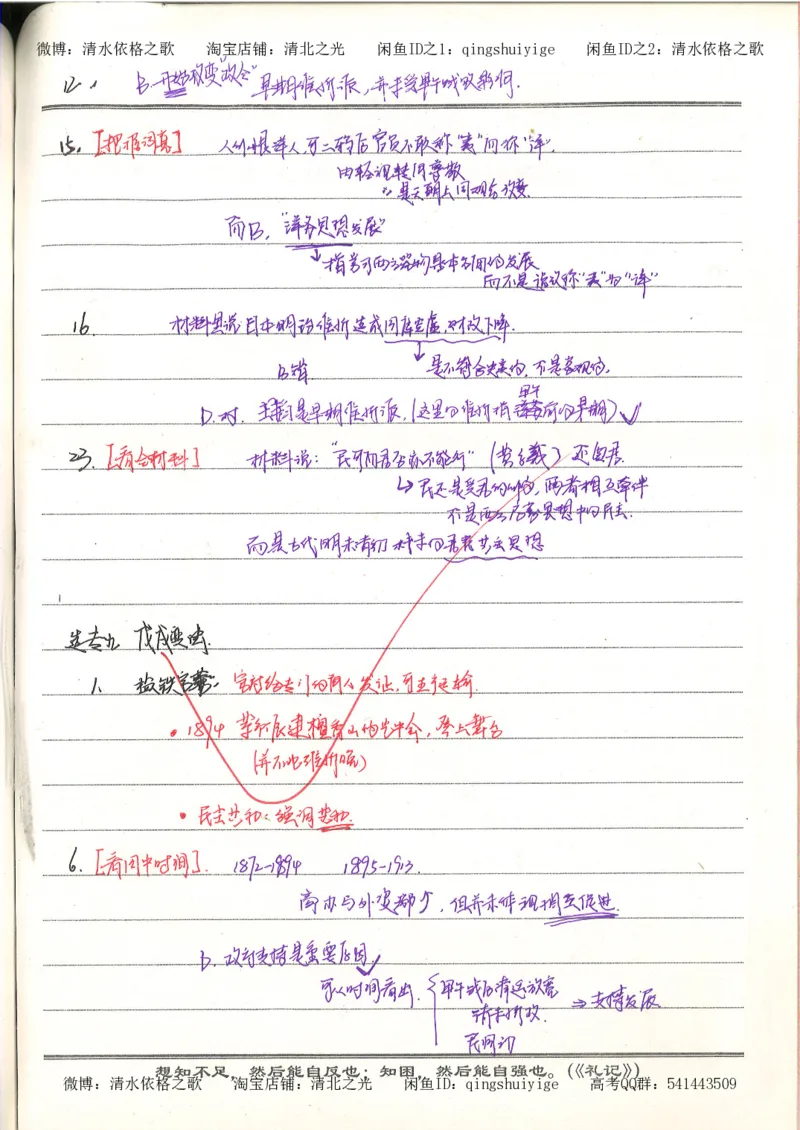 微博：清水依格之歌 淘宝店铺：清北之光 闲鱼ID之1：qingshuiyige 闲鱼ID之2：清水依格之歌
12. B.开始改变"政令" 早期维新派，并未受甲午战败影响.
15. [把握词真] 人们恨洋人，可二鸦后官员不敢称"夷"而称"洋".
由轻视转向尊敬
是天朝上国观念改变
而B，"洋务思想发展"
指者对西方器物具体应用的发展
而不是让改称"夷"为"洋"
16. 材料里说日本明治维新造成国库空虚，财政下降.
B错 是不符合史实的，不是客观的.
甲午
D.对. 主要是早期维新派，(这里的维新指前的早期)
23. [看全材料] 材料说："民可阻君亦不能行" (黄宗羲) 还包君.
民还是受君的响应，两者相互牵制
不是西方启蒙思想中的民主.
而是古代明末清初 的君民共主思想
选考九 戊戌变法.
1. 官府给专门的商人发证，可在运输.
1894 革命派建檀香山的兴中会，登上舞台
(并不比维新晚)
民主共和：强调共和.
6. [看图中时间]. 1872-1894 1895-1913.
商办与外资都少，但并未体现相互促进.
D. 政府支持是重要原因.
可从时间看出. 甲午战后清廷放宽
清末新政. ⇒支持发展
民国初
想知不足，然后能自反也；知困，然后能自强也。(《礼记》)
微博：清水依格之歌 淘宝店铺：清北之光 闲鱼ID：qingshuiyige 高考QQ群：541443509